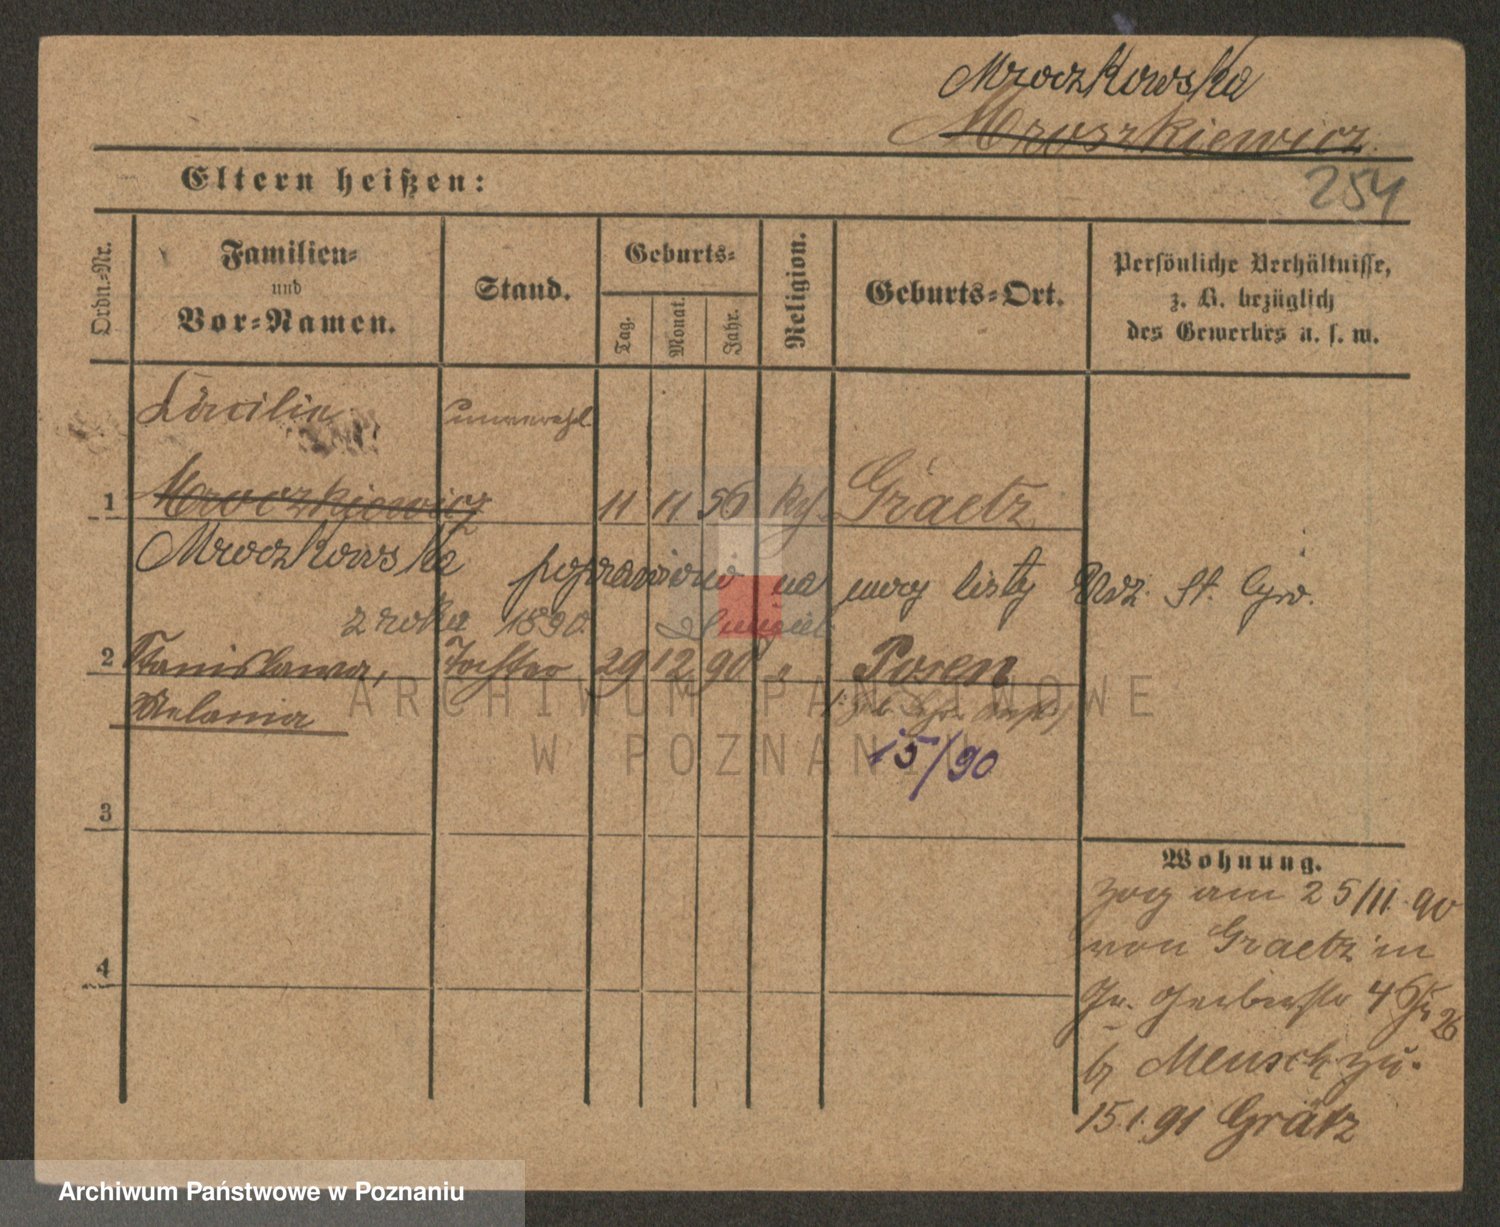 Mroczkowska
Mroszkiewicz.
Eltern heißen:
254
Ordn.-Nr.
Familien-
und
Vor-Namen.
Stand.
Geburts-
Tag.
Monat.
Jahr.
Religion.
Geburts-Ort.
Persönliche Verhältnisse,
z. B. bezüglich
des Gewerbes u. s. w.
Cäcilie unverehl.
1 Mroczkiewicz 11 11 56 kth. Graetz
Mroczkowska poprawiono na mocy listy
z roku 1890.
2 Stanislawa, Tochter 29 12 90 " Posen
Melania
15/90
3
4
Wohnung.
zog am 25/11. 90
von Graetz in
Gr. Gerberstr 4
b Mensch zu.
15.1.91 Grätz
ARCHIWUM PAŃSTWOWE
W POZNANIU
Archiwum Państwowe w Poznaniu